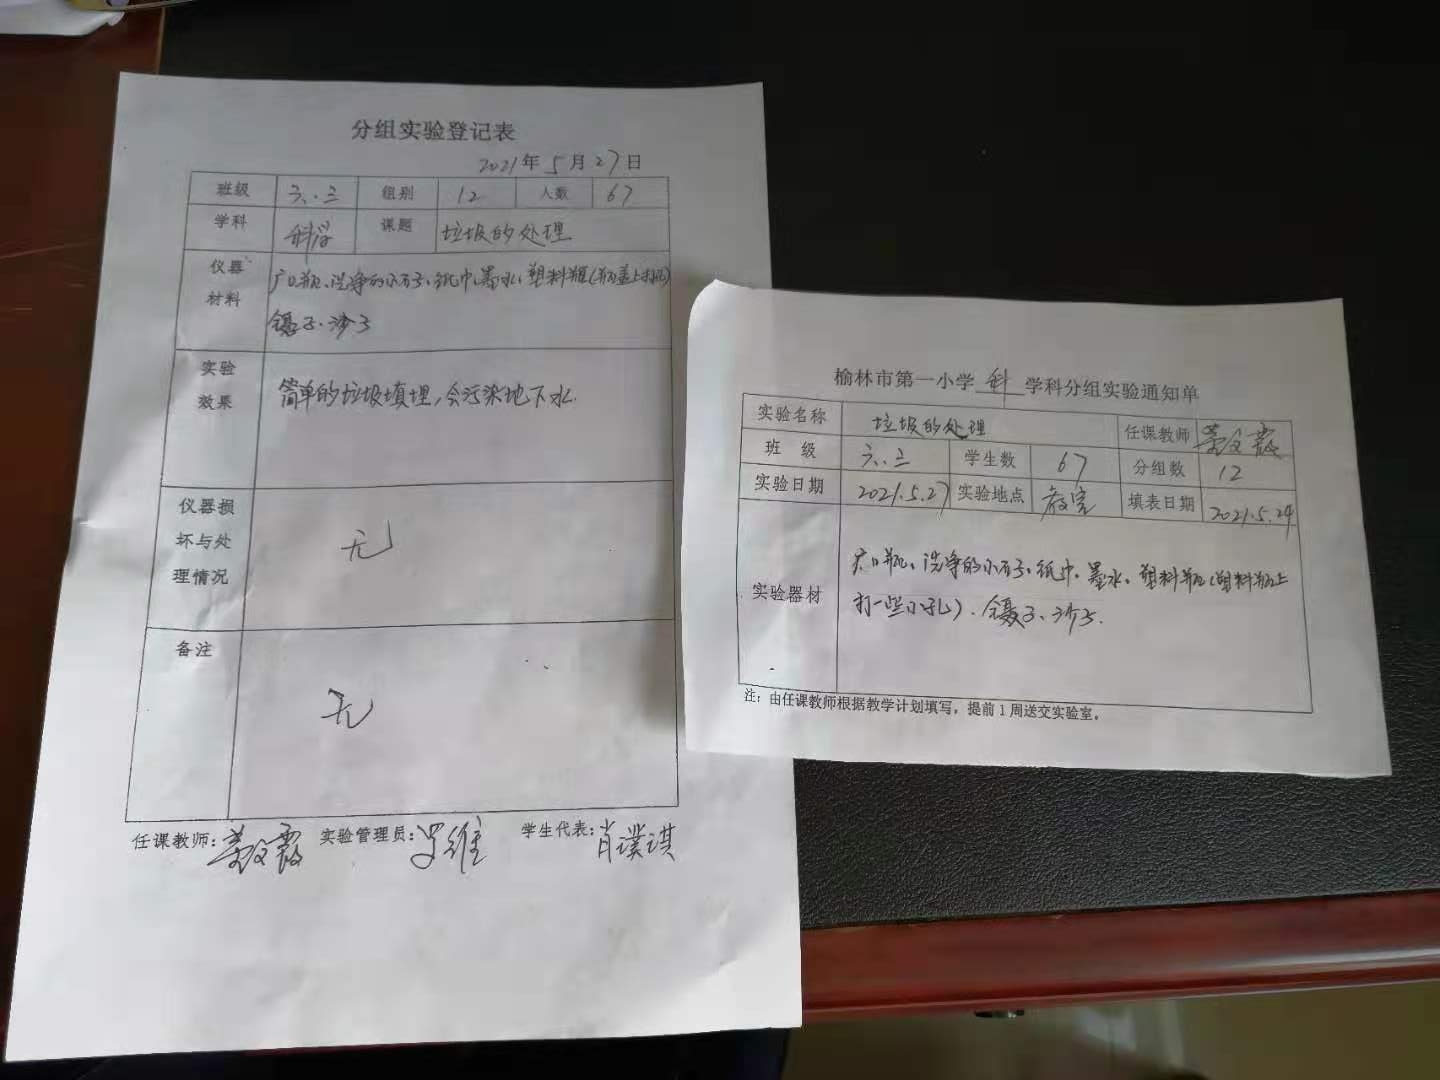 分组实验登记表
2021年5月27日
班级 六.三 组别 12 人数 67
学科 科学 课题 垃圾的处理
仪器材料 广口瓶、洗净的小石子、纸巾、墨水、塑料瓶(瓶盖上打孔)
镊子、沙子
实验效果 简单的垃圾填埋,会污染地下水.
仪器损坏与处理情况 无
备注 无
任课教师: 霞 实验管理员: 罗维 学生代表: 肖璞淇
榆林市第一小学 科 学科分组实验通知单
实验名称 垃圾的处理 任课教师 霞
班 级 六.三 学生数 67 分组数 12
实验日期 2021.5.27 实验地点 教室 填表日期 2021.5.24
实验器材 广口瓶、洗净的小石子、纸巾、墨水、塑料瓶(塑料瓶上
打一些小孔)、镊子、沙子.
注:由任课教师根据教学计划填写,提前1周送交实验室。